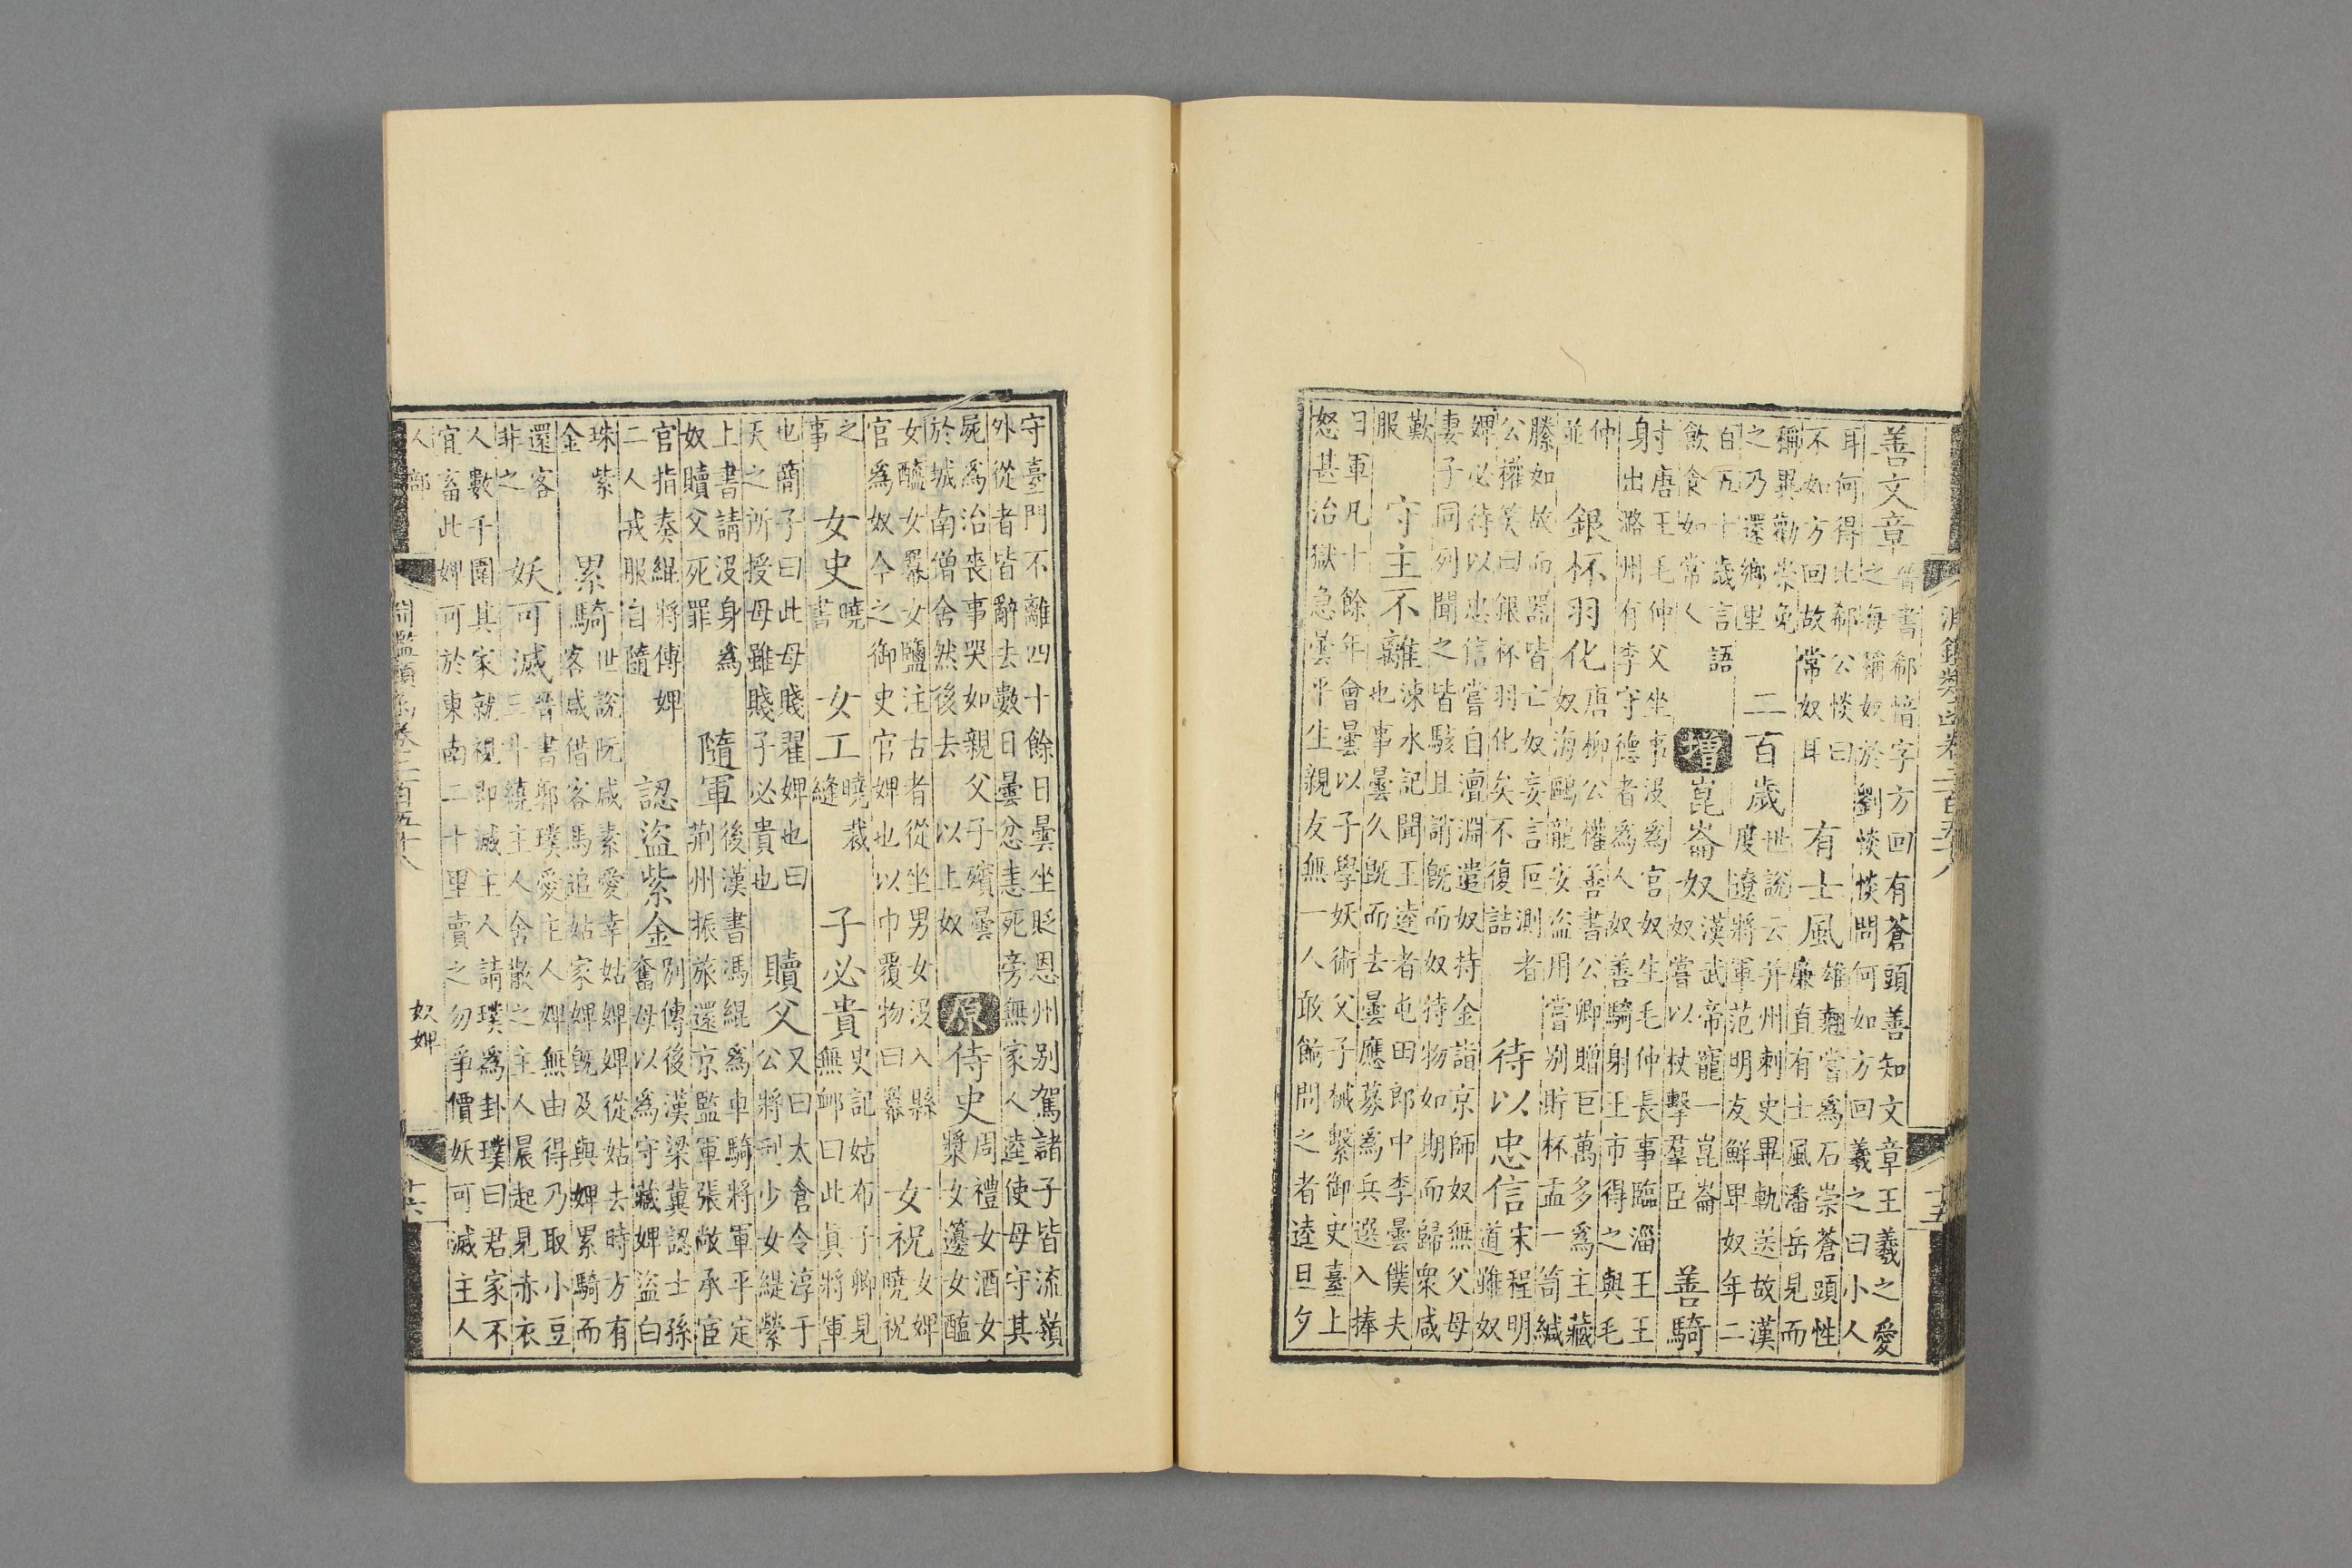 淵鑑類函卷二百五十八
十五
善文章
晉書郗愔字方回有蒼頭善知文章王羲之愛
之每稱奴於劉惔惔問何如方回羲之曰小人
耳何得比郗公惔曰
不如方回故常奴耳
有士風
雄翽嘗爲石崇蒼頭性
廉直有士風潘岳見而
稱異勸崇免
之乃還鄉里
二百歲
世說云并州刺史畢軌送故漢
度遼將軍范明友鮮卑奴年二
百五十歲言語
飲食如常人
增
崑崙奴
漢武帝寵一崑崙
奴嘗以杖擊羣臣
善騎
射
唐王毛仲父坐事没爲官奴生毛仲長事臨淄王王
出潞州有李守德者爲人奴善騎射王市得之與毛
仲
並
銀杯羽化
唐柳公權善書公卿贈巨萬多爲主藏
奴海鷗龍安盜用嘗别貯杯盂一笥緘
縢如故而器皆亡奴妄言叵測者
公權笑曰銀杯羽化矣不復詰
待以忠信
宋程明
道雖奴
婢必待以忠信嘗自澶淵遣奴持金詣京師奴無父母
妻子同列聞之皆駭且誚旣而奴持物如期而歸衆咸
歎
服
守主不離
涑水記聞王逵者屯田郎中李曇僕夫
也事曇久旣而去曇應募爲兵選入捧
日軍凡十餘年會曇以子學妖術父子械繫御史臺上
怒甚治獄急曇平生親友無一人敢餉問之者逵旦夕
守臺門不離四十餘日曇坐貶恩州别駕諸子皆流嶺
外從者皆辭去數日曇忿恚死旁無家人逵使母守其
屍爲治喪事哭如親父子殯曇
於城南僧舍然後去 以上奴
原
侍史
周禮女酒女
漿女籩女醢
女醯女羃女鹽注古者從坐男女没入縣
官爲奴今之御史官婢也以巾覆物曰羃
女祝
女婢
曉祝
之
事
女史
曉
書
女工
曉裁
縫
子必貴
史記姑布子卿見
無邮曰此眞將軍
也簡子曰此母賤翟婢也曰
天之所授母雖賤子必貴也
贖父
又曰太倉令淳于
公將刑少女緹縈
上書請没身爲
奴贖父死罪
隨軍
後漢書馮緄爲車騎將軍平定
荆州振旅還京監軍張敞承宦
官指奏緄將傅婢
二人戎服自隨
認盜紫金
别傳後漢梁冀認士孫
奮母以爲守藏婢盜白
珠紫
金
累騎
世說阮咸素愛幸姑婢婢從姑去時方有
客咸借客馬追姑家婢旣及與婢累騎而
還客
非之
妖可滅
晉書郭璞愛主人婢無由得乃取小豆
三斗繞主人舍散之主人晨起見赤衣
人數千圍其家就視即滅主人請璞爲卦璞曰君家不
宜畜此婢可於東南二十里賣之勿爭價妖可滅主人
人部
淵鑑類函卷二百五十八
奴婢
十六